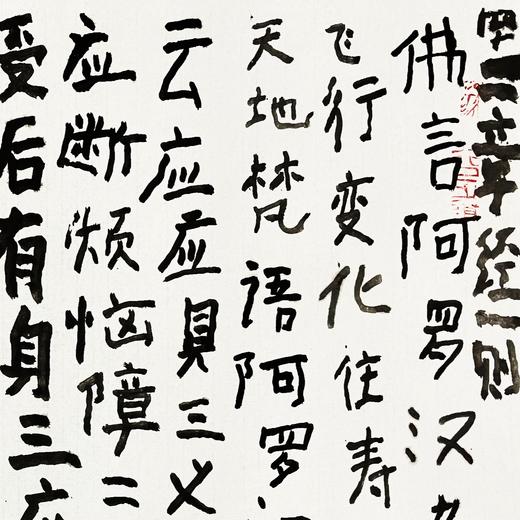 四二章经一则
佛言阿罗汉
飞行变化住寿
天地梵语阿罗
云应应具三义
应断烦恼障二
受后有身三应